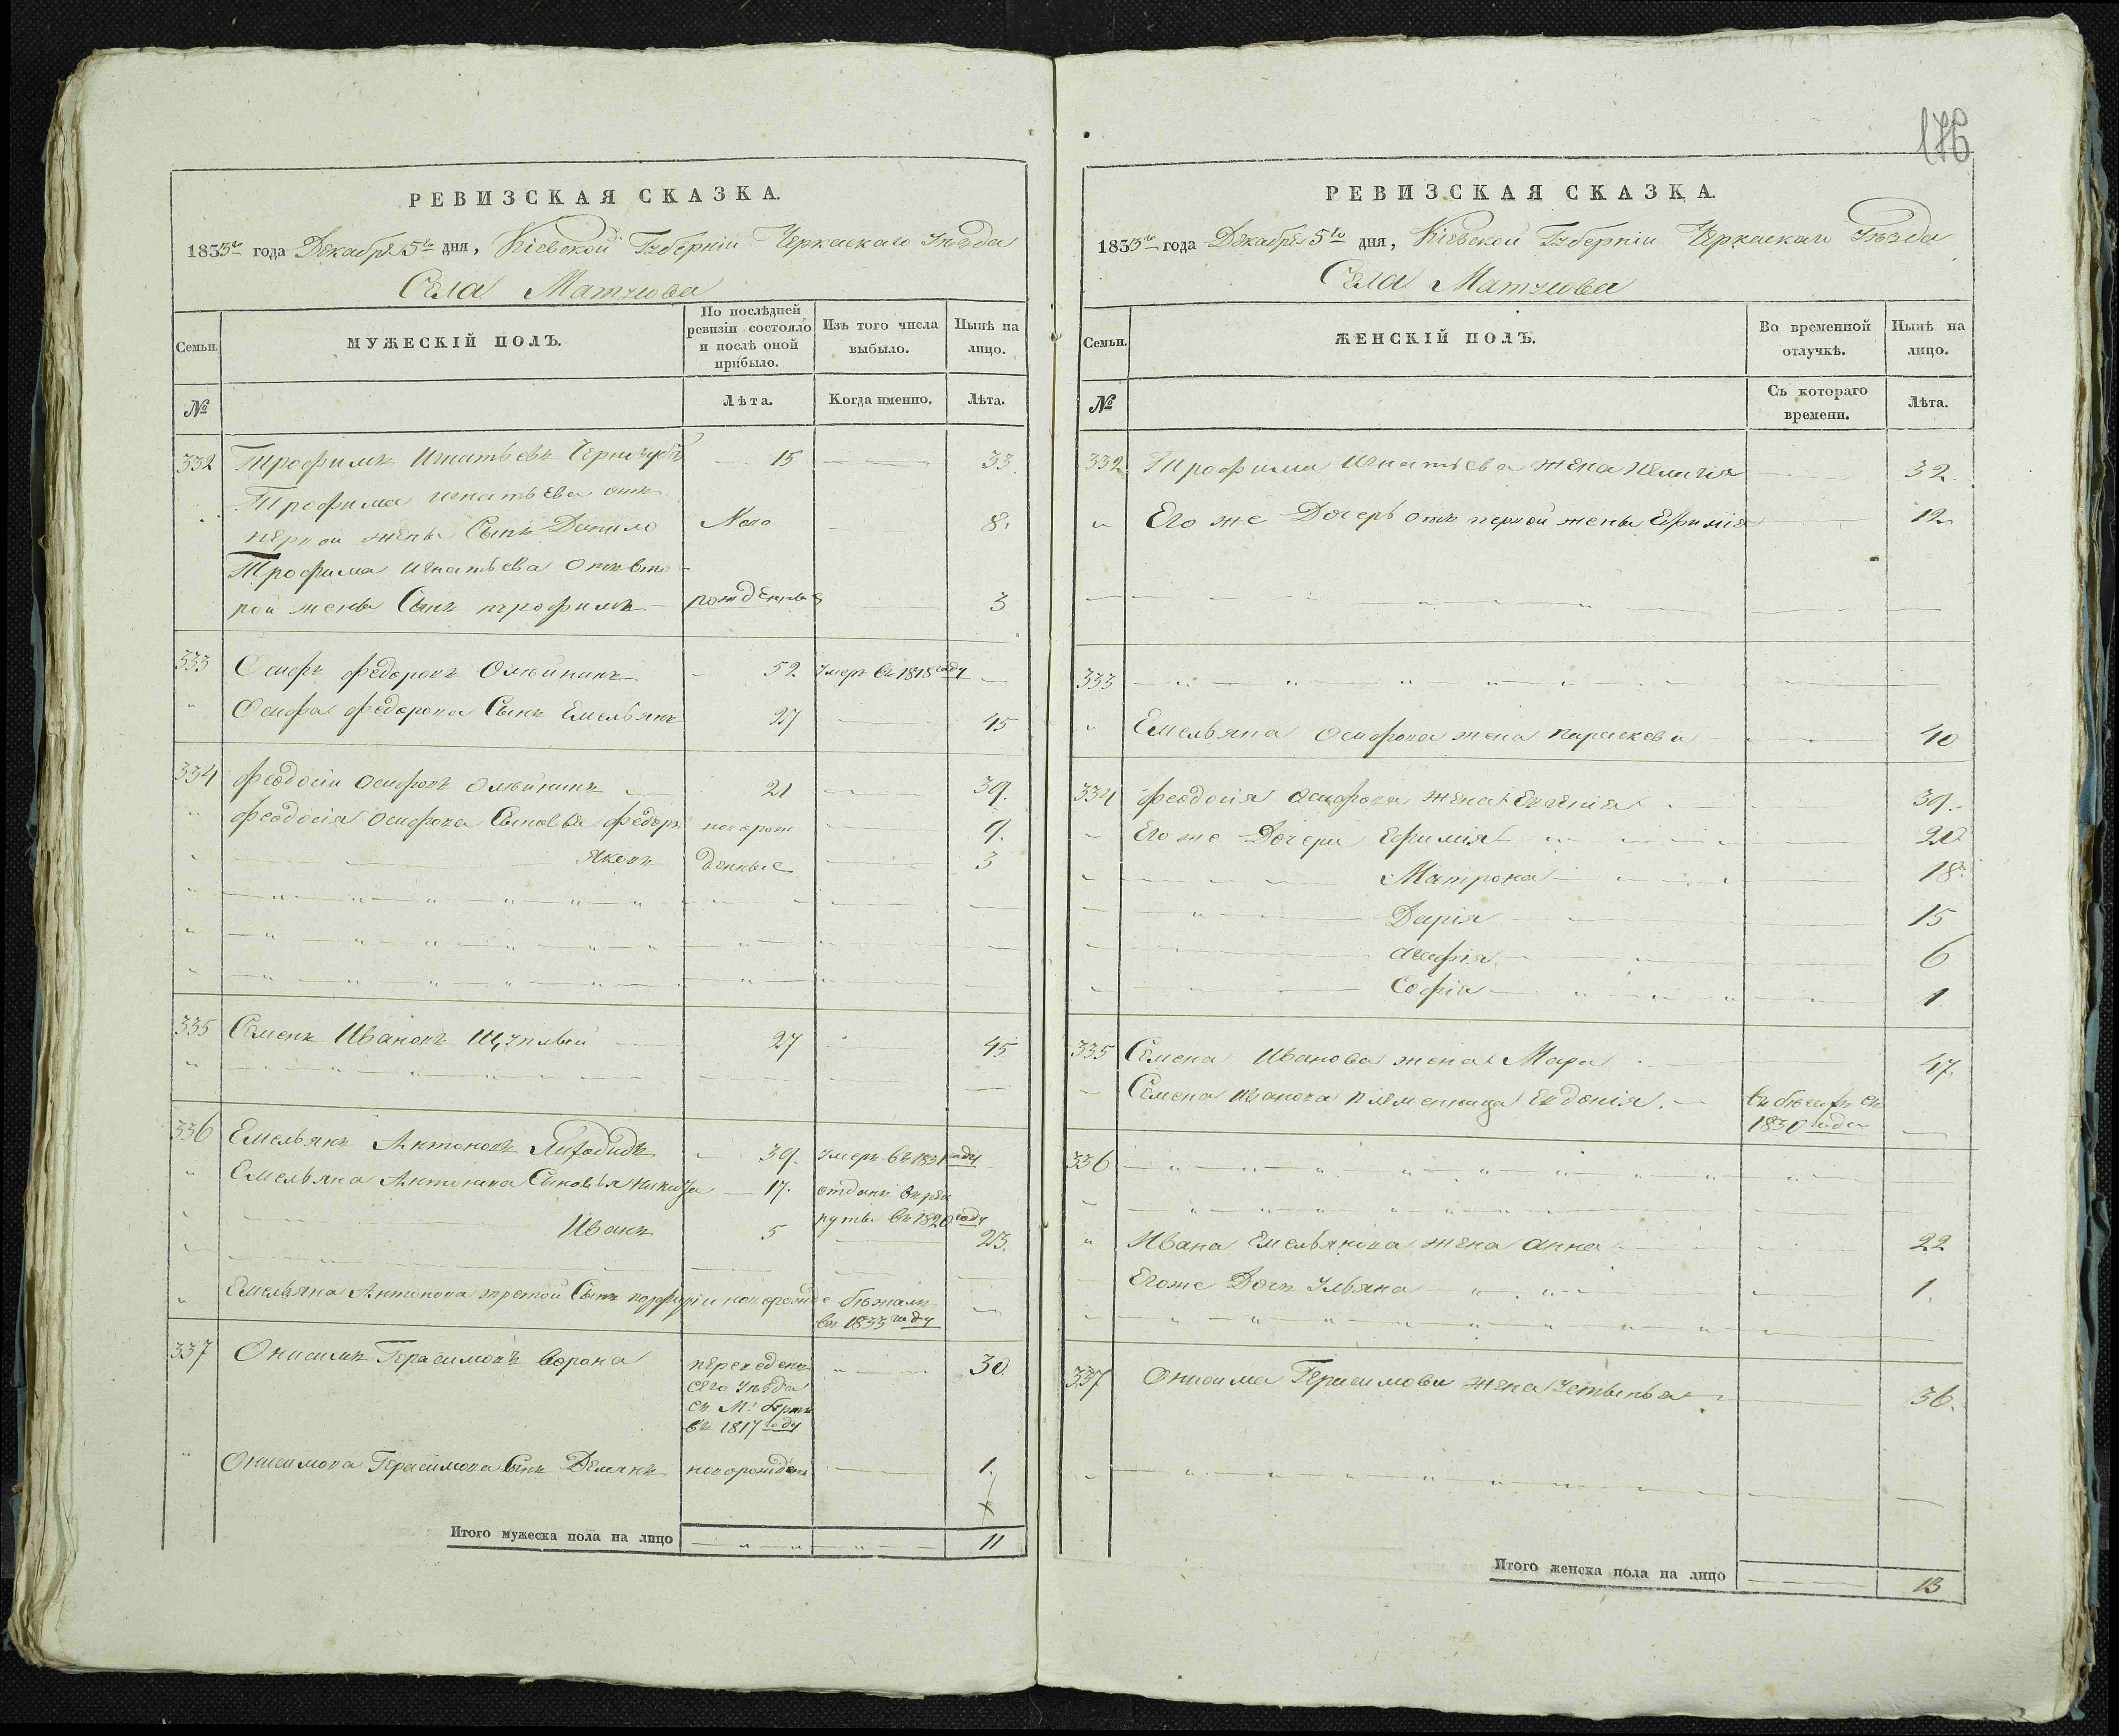 176
РЕВИЗСКАЯ СКАЗКА.
1833го года Декабря 5го дня, Кіевской Губерніи Черкаскаго Уѣзда
Села Матусова
Семьи. МУЖЕСКІЙ ПОЛЪ. По послѣдней ревизіи состояло и послѣ оной прибыло. Изъ того числа выбыло. Нынѣ на лицо.
№ Лѣта. Когда именно. Лѣта.
332 Трофимъ Игнатьевъ 15 33.
Трофима Игнатьева отъ
первой жены Сынъ Данило Ново 8.
Трофима Игнатьева Отъ вто
рой жены Сынъ трофимъ рожденные 3
333 Осифъ федоровъ Олѣйникъ 52 Умеръ въ 1818 году
" Осифа федорова Сынъ Емельянъ 27 45
334 феодосій осифовъ олѣйникъ 21 39.
" феодосія осифова Сыновья федоръ новорож 9.
Яковъ денные 3
335 Семенъ Ивановъ 27 45
336 Емельянъ Антоновъ 39. Умеръ въ 1831 году
" Емельяна Антонова Сыновья Никита 17. отданъ въ рек
Иванъ 5 руты въ 1820 году 23.
" Емельяна Антонова третой Сынъ порфирій новорожде бѣжалъ
въ 1833 году
337 Онисимъ Герасимовъ Ворона переведенъ 30.
сего Уѣзда
съ М:
въ 1817 году
" Онисимова Герасимова Сынъ Демянъ новорожденъ 1.
Итого мужеска пола на лицо 11
РЕВИЗСКАЯ СКАЗКА.
1833го года Декабря 5го дня, Кіевской Губерніи Черкаскаго Уѣзда
Села Матусова
Семьи. ЖЕНСКІЙ ПОЛЪ. Во временной отлучкѣ. Нынѣ на лицо.
№ Съ котораго времени. Лѣта.
332 Трофима Игнатьева жена Пелагія 32.
" Его же Дочерь отъ первой жены Ефимія 12
333
" Емельяна осифова жена параскева 40
334 феодосія осифова жена Евгенія 39.
Его же Дочери Ефимія 20
Матрона 18.
Дарія 15
агафія 6
Софія 1.
335 Семена Иванова жена Мара 47.
Семена Иванова племенница Евдокія.
1830 года
336
" Ивана Емельянова жена анна 22
Егоже Дочь Ульяна 1.
337 Онисима Герасимова жена Устинья 36.
Итого женска пола на лицо 13